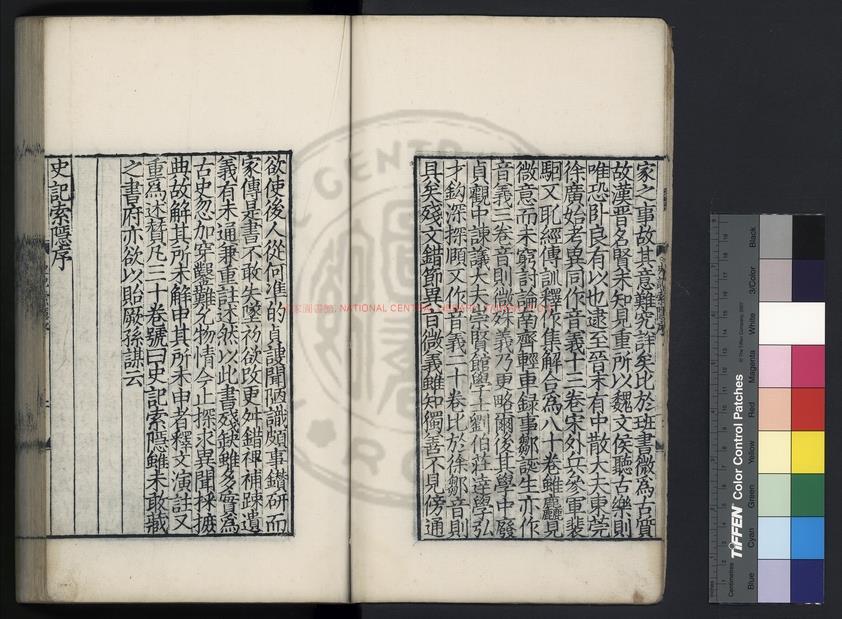 家之事故其意難究詳矣比於班書微為古質
故漢晋名賢未知見重所以魏文侯聽古樂則
唯恐卧良有以也逮至晉末有中散大夫東莞
徐廣始考異同作音義十三卷宋外兵叅軍裴
駰又取經傳訓釋作集解合為八十卷雖麤見
微意而未窮討論南齊輕車録事鄒誕生亦作
音義三卷音則微殊義乃更略爾後其學中廢
貞觀中諫議大夫崇賢館學士劉伯莊達學弘
才鈎深探賾又作音義二十卷比於徐鄒音則
具矣殘文錯節異音微義雖知獨善不見傍通
欲使後人從何準的貞謏聞陋識頗事鑽研而
家傳是書不敢失墜初欲改更舛錯裨補踈遺
義有未通兼重註述然以此書殘缺雖多實為
古史忽加穿鑿難允物情今止探求異聞採摭
典故解其所未解申其所未申者釋文演註又
重為述贊凡三十卷號曰史記索隱雖未敢藏
之書府亦欲以貽厥孫謀云
史記索隱序
NATIONAL CENTRAL LIBRARY
TIFFEN Color Control Patches
© The Tiffen Company, 2007
Centimetres
Inches
Blue
Cyan
Green
Yellow
Red
Magenta
White
3/Color
Black